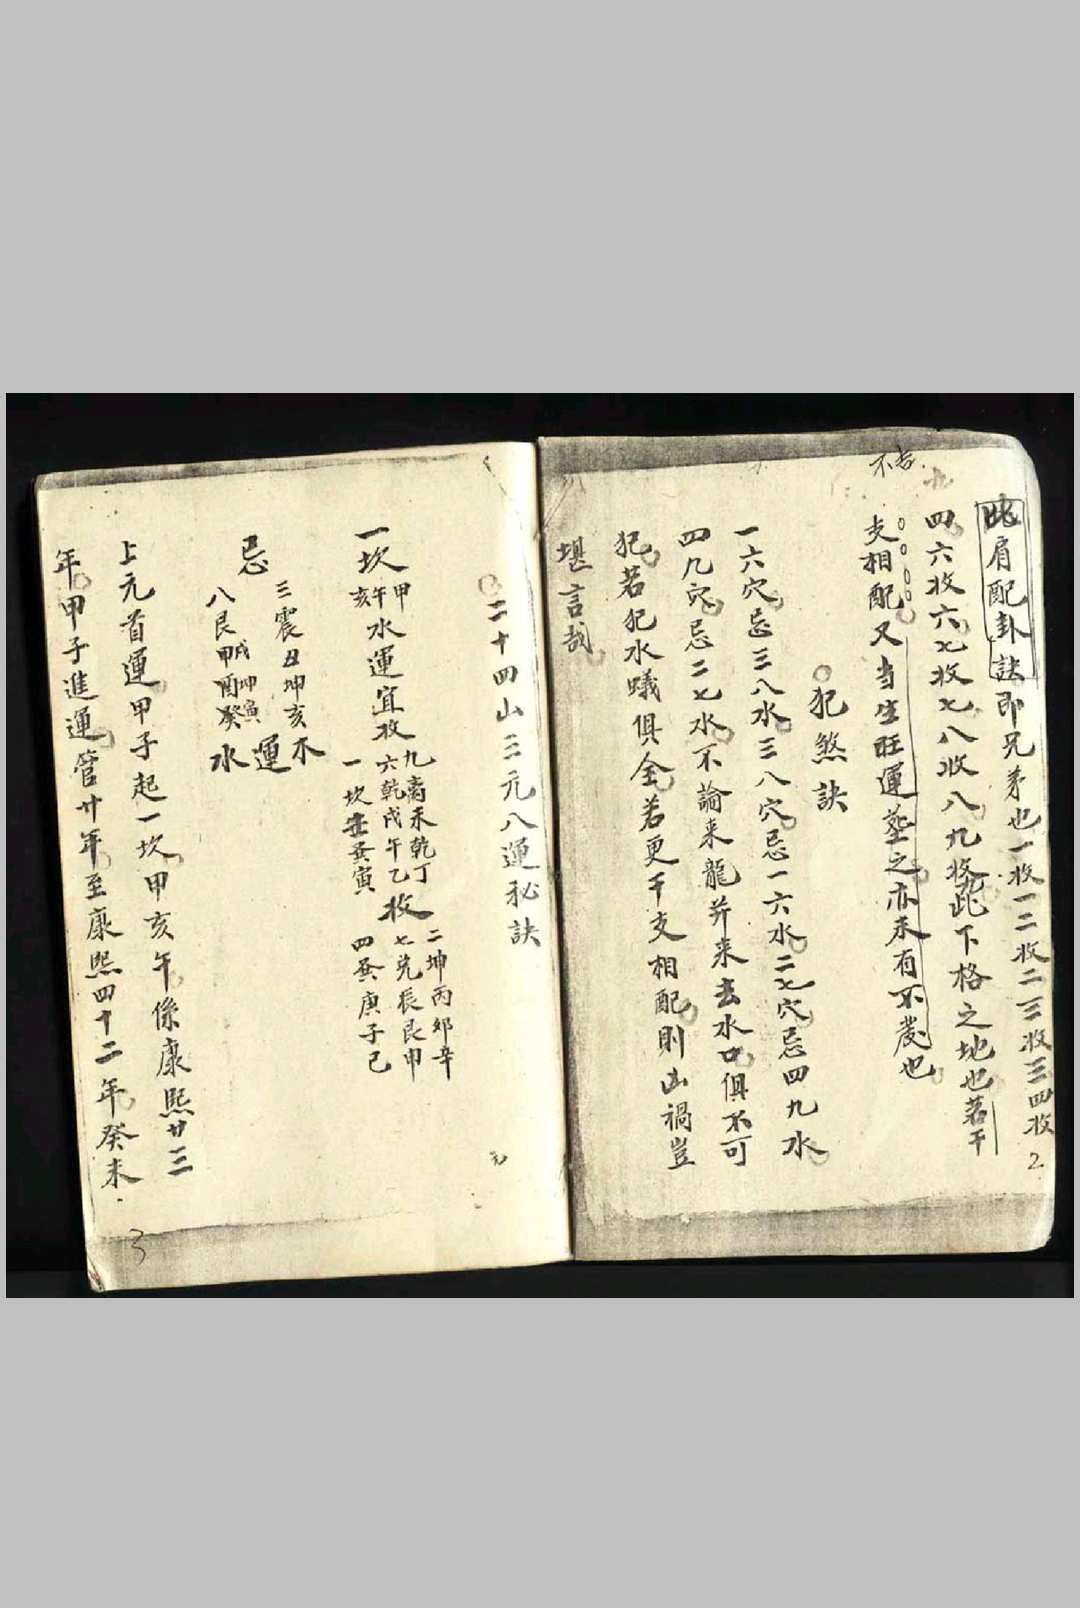 比肩配卦訣即兄弟也一收一二收二三收三四收
四六收六七收七八收八九收此下格之地也若干
支相配又当生旺運塟之亦未有不發也
不吉
犯煞訣
一六穴忌三八水三八穴忌一六水二七穴忌四九水
四九穴忌二七水不論来龍并来去水口俱不可
犯若犯水蟻俱全若更干支相配則凶禍豈
堪言哉
2
二十四山三元八運秘訣
一坎甲午亥水運宜收九离未乾丁六乾戌午乙一坎壬寅收二坤丙卯辛七兑辰艮申四庚子己
忌三震丑坤亥木運八艮戌坤寅甲酉癸水
上元首運甲子起一坎甲亥午係康熙廿三
年甲子進運管廿年至康熙四十二年癸未
元
3